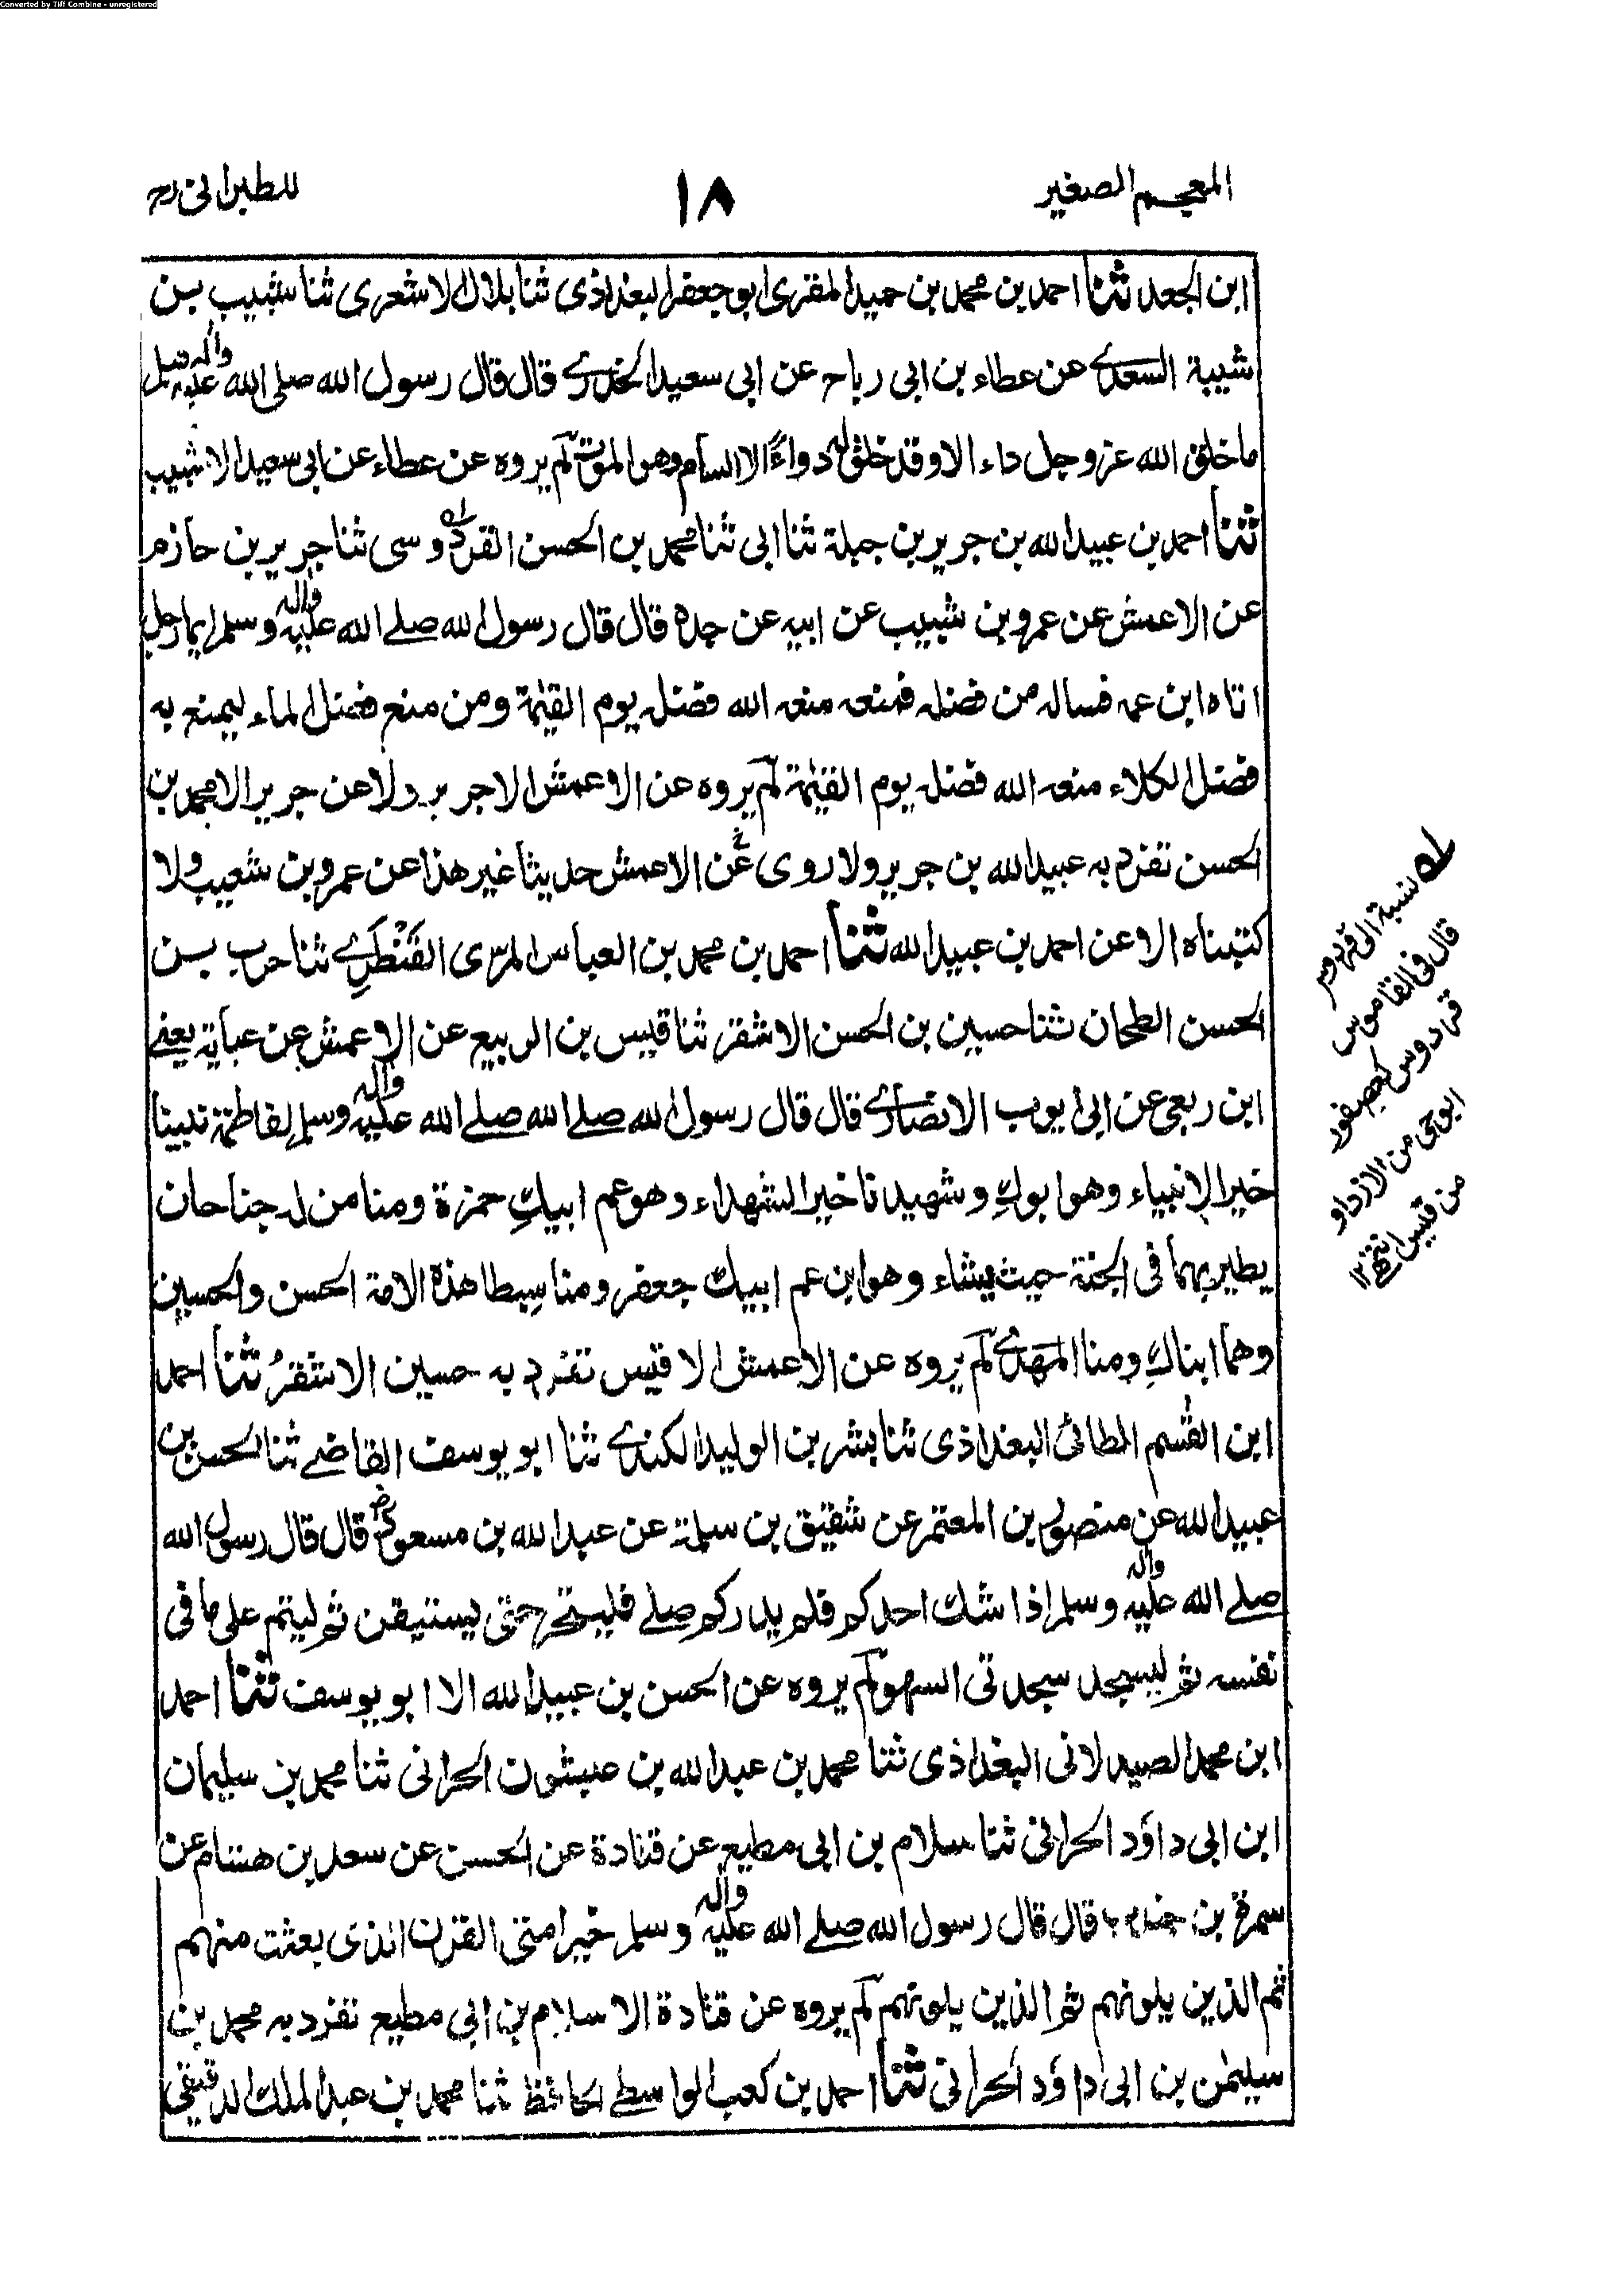 Converted by Tiff Combine - unregistered
المعجم الصغير ١٨ للطبرانی رح
ابن الجعد ثنا احمد بن محمد بن حمید المقری ابو جعفر البغداذی ثنا بلال الاشعری ثنا شبیب بن
شیبة السعدے عن عطاء بن ابی رباح عن ابی سعید الخدرے قال قال رسول الله صلی الله علیه واٰله وسلم
ما خلق الله عز وجل داء الا وقد خلق له دواءً الا السام وهو الموت لم یروه عن عطاء عن ابی سعید الا شبیب
ثنا احمد بن عبید الله بن جریر بن جبلة ثنا ابی ثنا محمد بن الحسن القردوسی ثنا جریر بن حازم
عن الاعمش عن عمرو بن شبیب عن ابیه عن جده قال قال رسول الله صلے الله علیه واٰله وسلم ایما رجل
اتاه ابن عمه فساله من فضله فمنعه منعه الله فضله یوم القیٰمة ومن منع فضل الماء لیمنع به
فضل الکلاء منعه الله فضله یوم القیٰمة لم یروه عن الاعمش الا جریر ولا عن جریر الا محمد بن
الحسن تفرد به عبید الله بن جریر ولا روی عن الاعمش حدیثا غیر هذا عن عمرو بن شعیب ولا
کتبناه الا عن احمد بن عبید الله ثنا احمد بن محمد بن العباس المرّی القَنْطَرِے ثنا حرب بن
الحسن الطحان ثنا حسین بن الحسن الاشقر ثنا قیس بن الربیع عن الاعمش عن عبایة یعنے
ابن ربعی عن ابی ایوب الانصارے قال قال رسول الله صلے الله صلے الله علیه واٰله وسلم لفاطمة نبینا
خیر الانبیاء وهو ابوكِ وشهیدنا خیر الشهداء وهو عم ابیكِ حمزة ومنا من له جناحان
یطیر بهما فی الجنة حیث یشاء وهو ابن عم ابیك جعفر ومنا سِبطا هذه الامة الحسن والحسین
وهما ابناكِ ومنا المهدے لم یروه عن الاعمش الا قیس تفرد به حسین الاشقرُ ثنا احمد
ابن القٰسم الطائی البغداذی ثنا بشر بن الولید الکندے ثنا ابو یوسف القاضے ثنا الحسن بن
عبید الله عن منصور بن المعتمر عن شقیق بن سلمة عن عبد الله بن مسعود رض قال قال رسول الله
صلے الله علیه واٰله وسلم اذا شك احدکم فلم یدر کم صلے فلیتحر حتی یستیقن ثم لیتم علی ما فی
نفسه ثم لیسجد سجدتی السهو لم یروه عن الحسن بن عبید الله الا ابو یوسف ثنا احمد
ابن محمد الصیدلانی البغداذی ثنا محمد بن عبد الله بن عیشون الحرانی ثنا محمد بن سلیمان
ابن ابی داؤد الحرانی ثنا سلام بن ابی مطیع عن قتادة عن الحسن عن سعد بن هشام عن
سمرة بن جندب قال قال رسول الله صلے الله علیه واٰله وسلم خیر امتی القرن الذی بعثت منهم
ثم الذین یلونهم ثم الذین یلونهم لم یروه عن قتادة الا سلام بن ابی مطیع تفرد به محمد بن
سلیمٰن بن ابی داؤد الحرانی ثنا احمد بن کعب الواسطے الحافظ ثنا محمد بن عبد الملك الدقیقی
لـه نسبة الی قردوس
قال فی القاموس
قردوس کعصفور
ابو حی من الازد او
من قیس انتهے ١٢